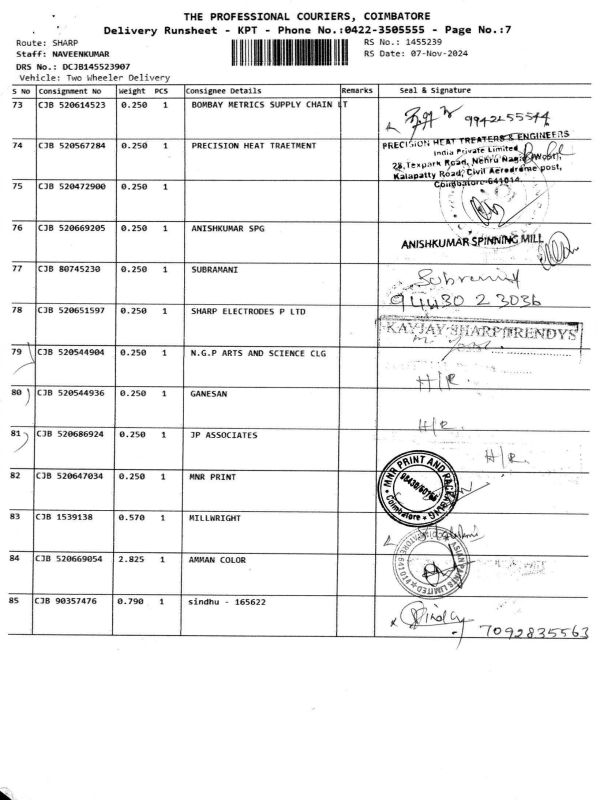 THE PROFESSIONAL COURIERS, COIMBATORE
Delivery Runsheet - KPT - Phone No.:0422-3505555 - Page No.:7
Route: SHARP
RS No.: 1455239
Staff: NAVEENKUMAR
RS Date: 07-Nov-2024
DRS No.: DCJB145523907
Vehicle: Two Wheeler Delivery
S No Consignment No Weight PCS Consignee Details Remarks Seal & Signature
73 CJB 520614523 0.250 1 BOMBAY METRICS SUPPLY CHAIN LT 9942155544
74 CJB 520567284 0.250 1 PRECISION HEAT TRAETMENT
PRECISION HEAT TREATERS & ENGINEERS
India Private Limited
28, Texpark Road, Nehru Nagar (West),
Kalapatty Road, Civil Aerodrome post,
Coimbatore-641014.
75 CJB 520472900 0.250 1
76 CJB 520669205 0.250 1 ANISHKUMAR SPG
ANISHKUMAR SPINNING MILL
77 CJB 80745230 0.250 1 SUBRAMANI
94430 23036
78 CJB 520651597 0.250 1 SHARP ELECTRODES P LTD
KAYJAY SHARP TRENDYS
79 CJB 520544904 0.250 1 N.G.P ARTS AND SCIENCE CLG
H/R.
80 CJB 520544936 0.250 1 GANESAN
H/R.
81 CJB 520686924 0.250 1 JP ASSOCIATES
H/R.
82 CJB 520647034 0.250 1 MNR PRINT
MNR PRINT AND PACKAGING
Coimbatore
83 CJB 1539138 0.570 1 MILLWRIGHT
84 CJB 520669054 2.825 1 AMMAN COLOR
85 CJB 90357476 0.790 1 sindhu - 165622
7092835563